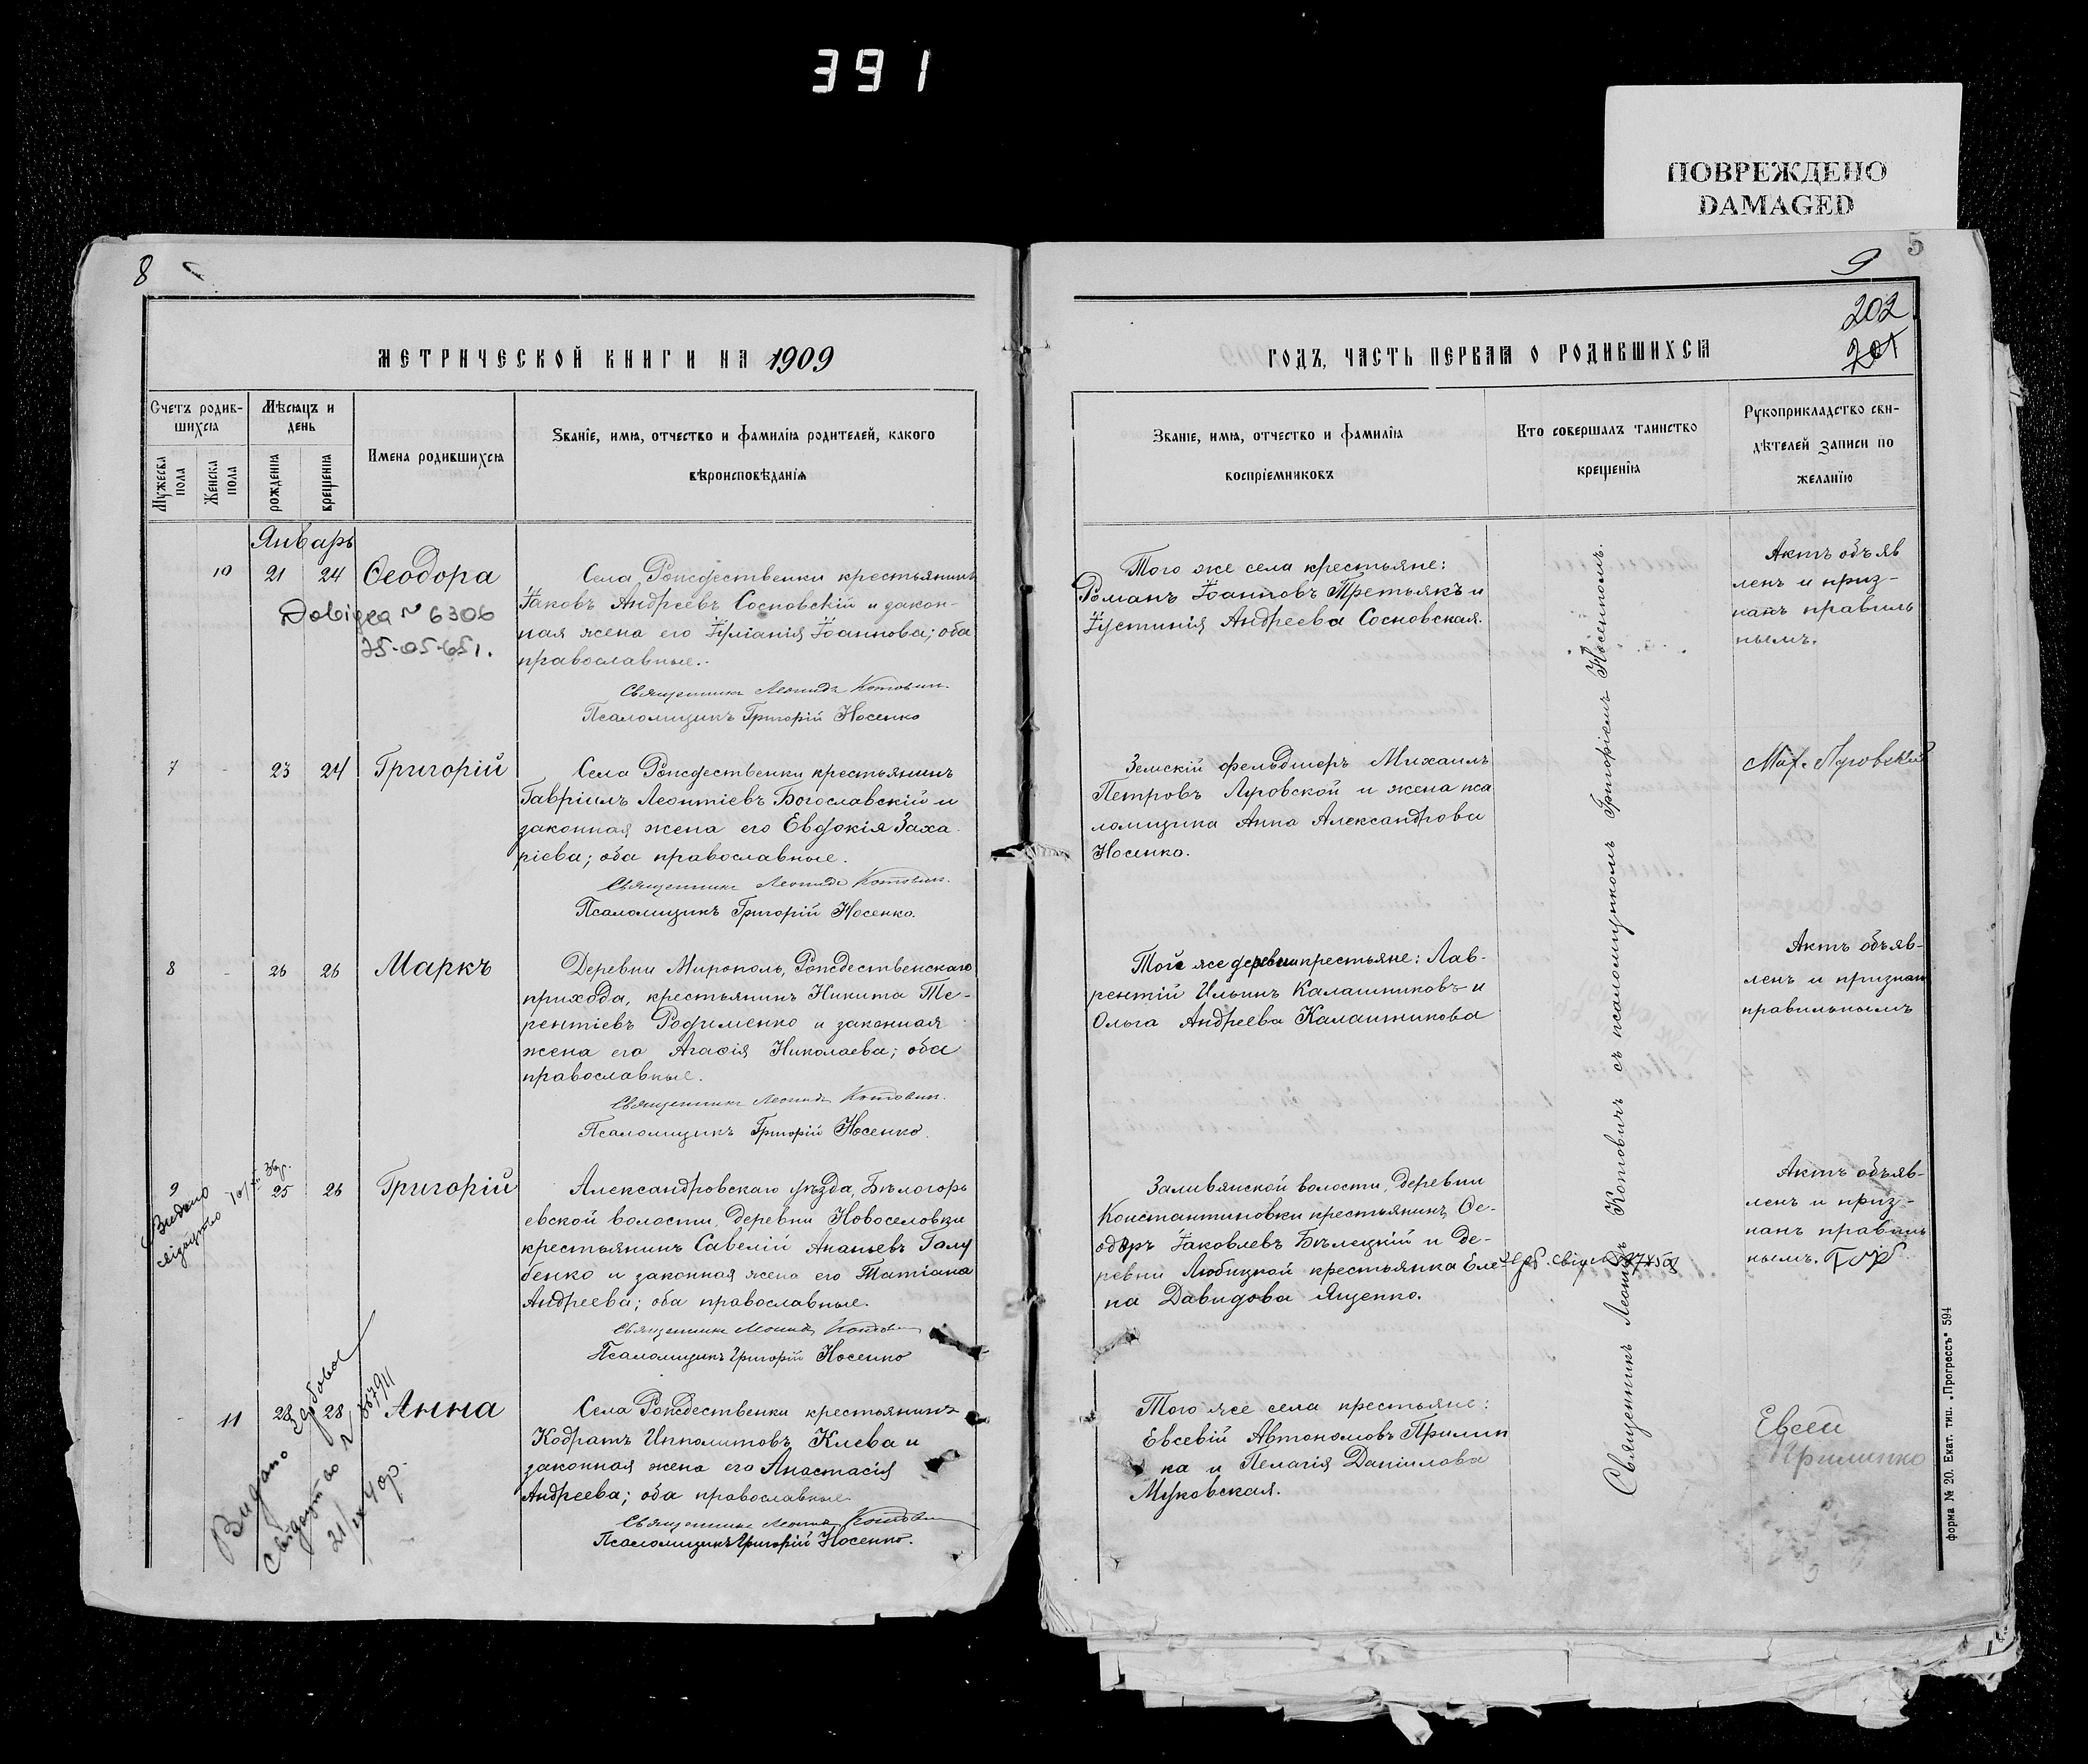 391
ПОВРЕЖДЕНО
DAMAGED
8
МЕТРИЧЕСКОЙ КНИГИ НА 1909
Счетъ родив-
шихся
Мѣсяцъ и
день
Мужеска
пола
Женска
пола
рожденія
крещенія
Имена родившихся
Званіе, имя, отчество и фамилія родителей, какого
вѣроисповѣданія
Январь
10 21 24 Ѳеодора
Довідка № 6306
Села Рождественки крестьянинъ
Іаковъ Андреевъ Сосновскій и закон-
ная жена его Іуліанія Іоаннова; оба
православные.
Священникъ Леонидъ Котович.
Псаломщикъ Григорій Носенко
7 - 23 24 Григорій
Села Рождественки крестьянинъ
Гавріилъ Леонтіевъ Богославскій и
законная жена его Евдокія Заха-
ріева; оба православные.
Священникъ Леонидъ Котович.
Псаломщикъ Григорій Носенко.
8 - 26 26 Маркъ
Деревни Мирополь, Рождественскаго
прихода, крестьянинъ Никита Те-
рентіевъ Родименко и законная
жена его Агафія Николаева; оба
православные.
Священникъ Леонидъ Котович.
Псаломщикъ Григорій Носенко.
9 25 26 Григорій
Видано
свідоцтво
Александровскаго уѣзда, Бѣлогорь
евской волости, деревни Новоселовки
крестьянинъ Савелій Ананьевъ Галу
бенко и законная жена его Татіана
Андреева; оба православные.
Священникъ Леонидъ Котович
Псаломщикъ Григорій Носенко
- 11 28 28 Анна
Видано
свідоцтво
Села Рождественки крестьянинъ
Кодратъ Ипполитовъ Клева и
законная жена его Анастасія
Андреева; оба православные.
Священникъ Леонидъ Котович
Псаломщикъ Григорій Носенко.
9
5
202
201
ГОДЪ, ЧАСТЬ ПЕРВАЯ О РОДИВШИХСЯ
Званіе, имя, отчество и фамилія
воспріемниковъ
Кто совершалъ таинство
крещенія
Рукоприкладство сви-
дѣтелей записи по
желанію
Того же села крестьяне:
Романъ Іоанновъ Третьякъ и
Іустинія Андреева Сосновская.
Актъ объяв
ленъ и приз-
нанъ правиль
нымъ.
Земскій фельдшеръ Михаилъ
Петровъ Луговской и жена пса
ломщика Анна Александрова
Носенко.
Той же деревни крестьяне: Лав-
рентій Ильинъ Калашниковъ и
Ольга Андреева Калашникова
Актъ объяв-
ленъ и признан
правильнымъ
Заливянской волости, деревни
Константиновки крестьянинъ Ѳе-
одоръ Іаковлевъ Бѣлецкій и де-
ревни Любицкой крестьянка Еле-
на Давидова Яценко.
Актъ объяв-
ленъ и приз-
нанъ правиль
нымъ.
Того же села крестьяне:
Евсевій Автономовъ Прилип
ка и Пелагія Даніилова
Муковская.
Евсей
Прилипко
Священникъ Леонидъ Котовичъ съ псаломщикомъ Григоріемъ Носенкомъ.
форма № 20. Екат. тип. „Прогрессъ“ 594